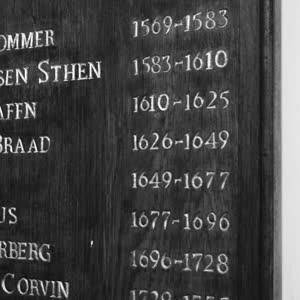 OMMER 1569-1583
SEN STHEN 1583-1610
AFFN 1610-1625
BRAAD 1626-1649
1649-1677
US 1677-1696
RBERG 1696-1728
CORVIN